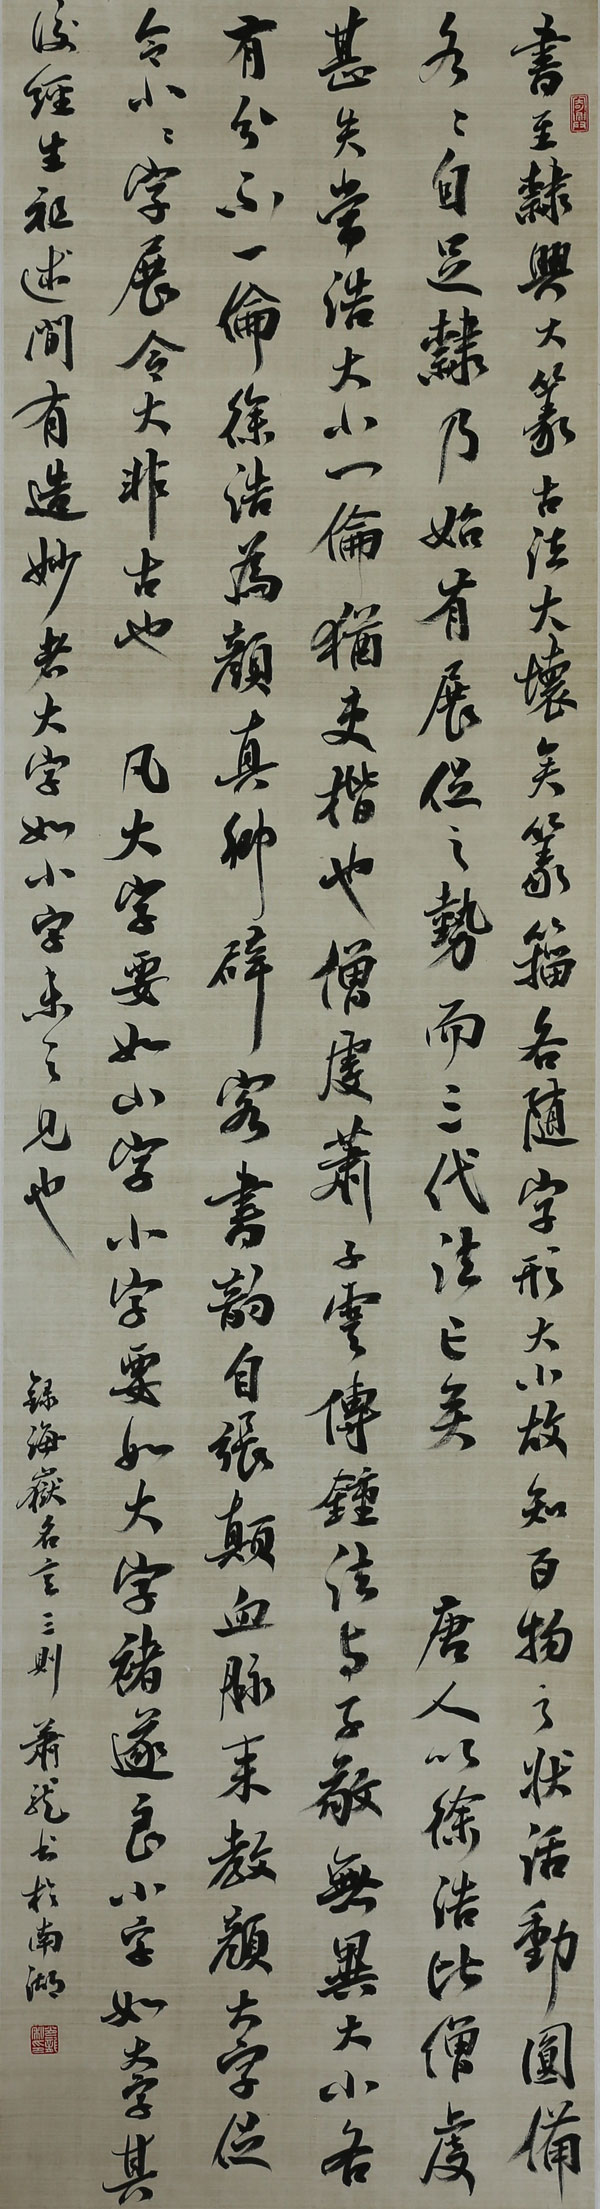 書至隸興大篆古法大壞矣篆籀各随字形大小故知百物之狀活動圓備
各々自足隸乃始有展促之勢而三代法亡矣 唐人以徐浩比僧虔
甚失當浩大小一倫猶吏楷也僧虔蕭子雲傳鍾法与子敬無異大小各
有分不一倫徐浩為顏真卿碎客書韵自張顛血脉来教顏大字促
令小々字展令大非古也 凡大字要如小字小字要如大字褚遂良小字如大字其
後經生祖述間有造妙者大字如小字未之見也
録海嶽名言三則 蕭龍书於南湖